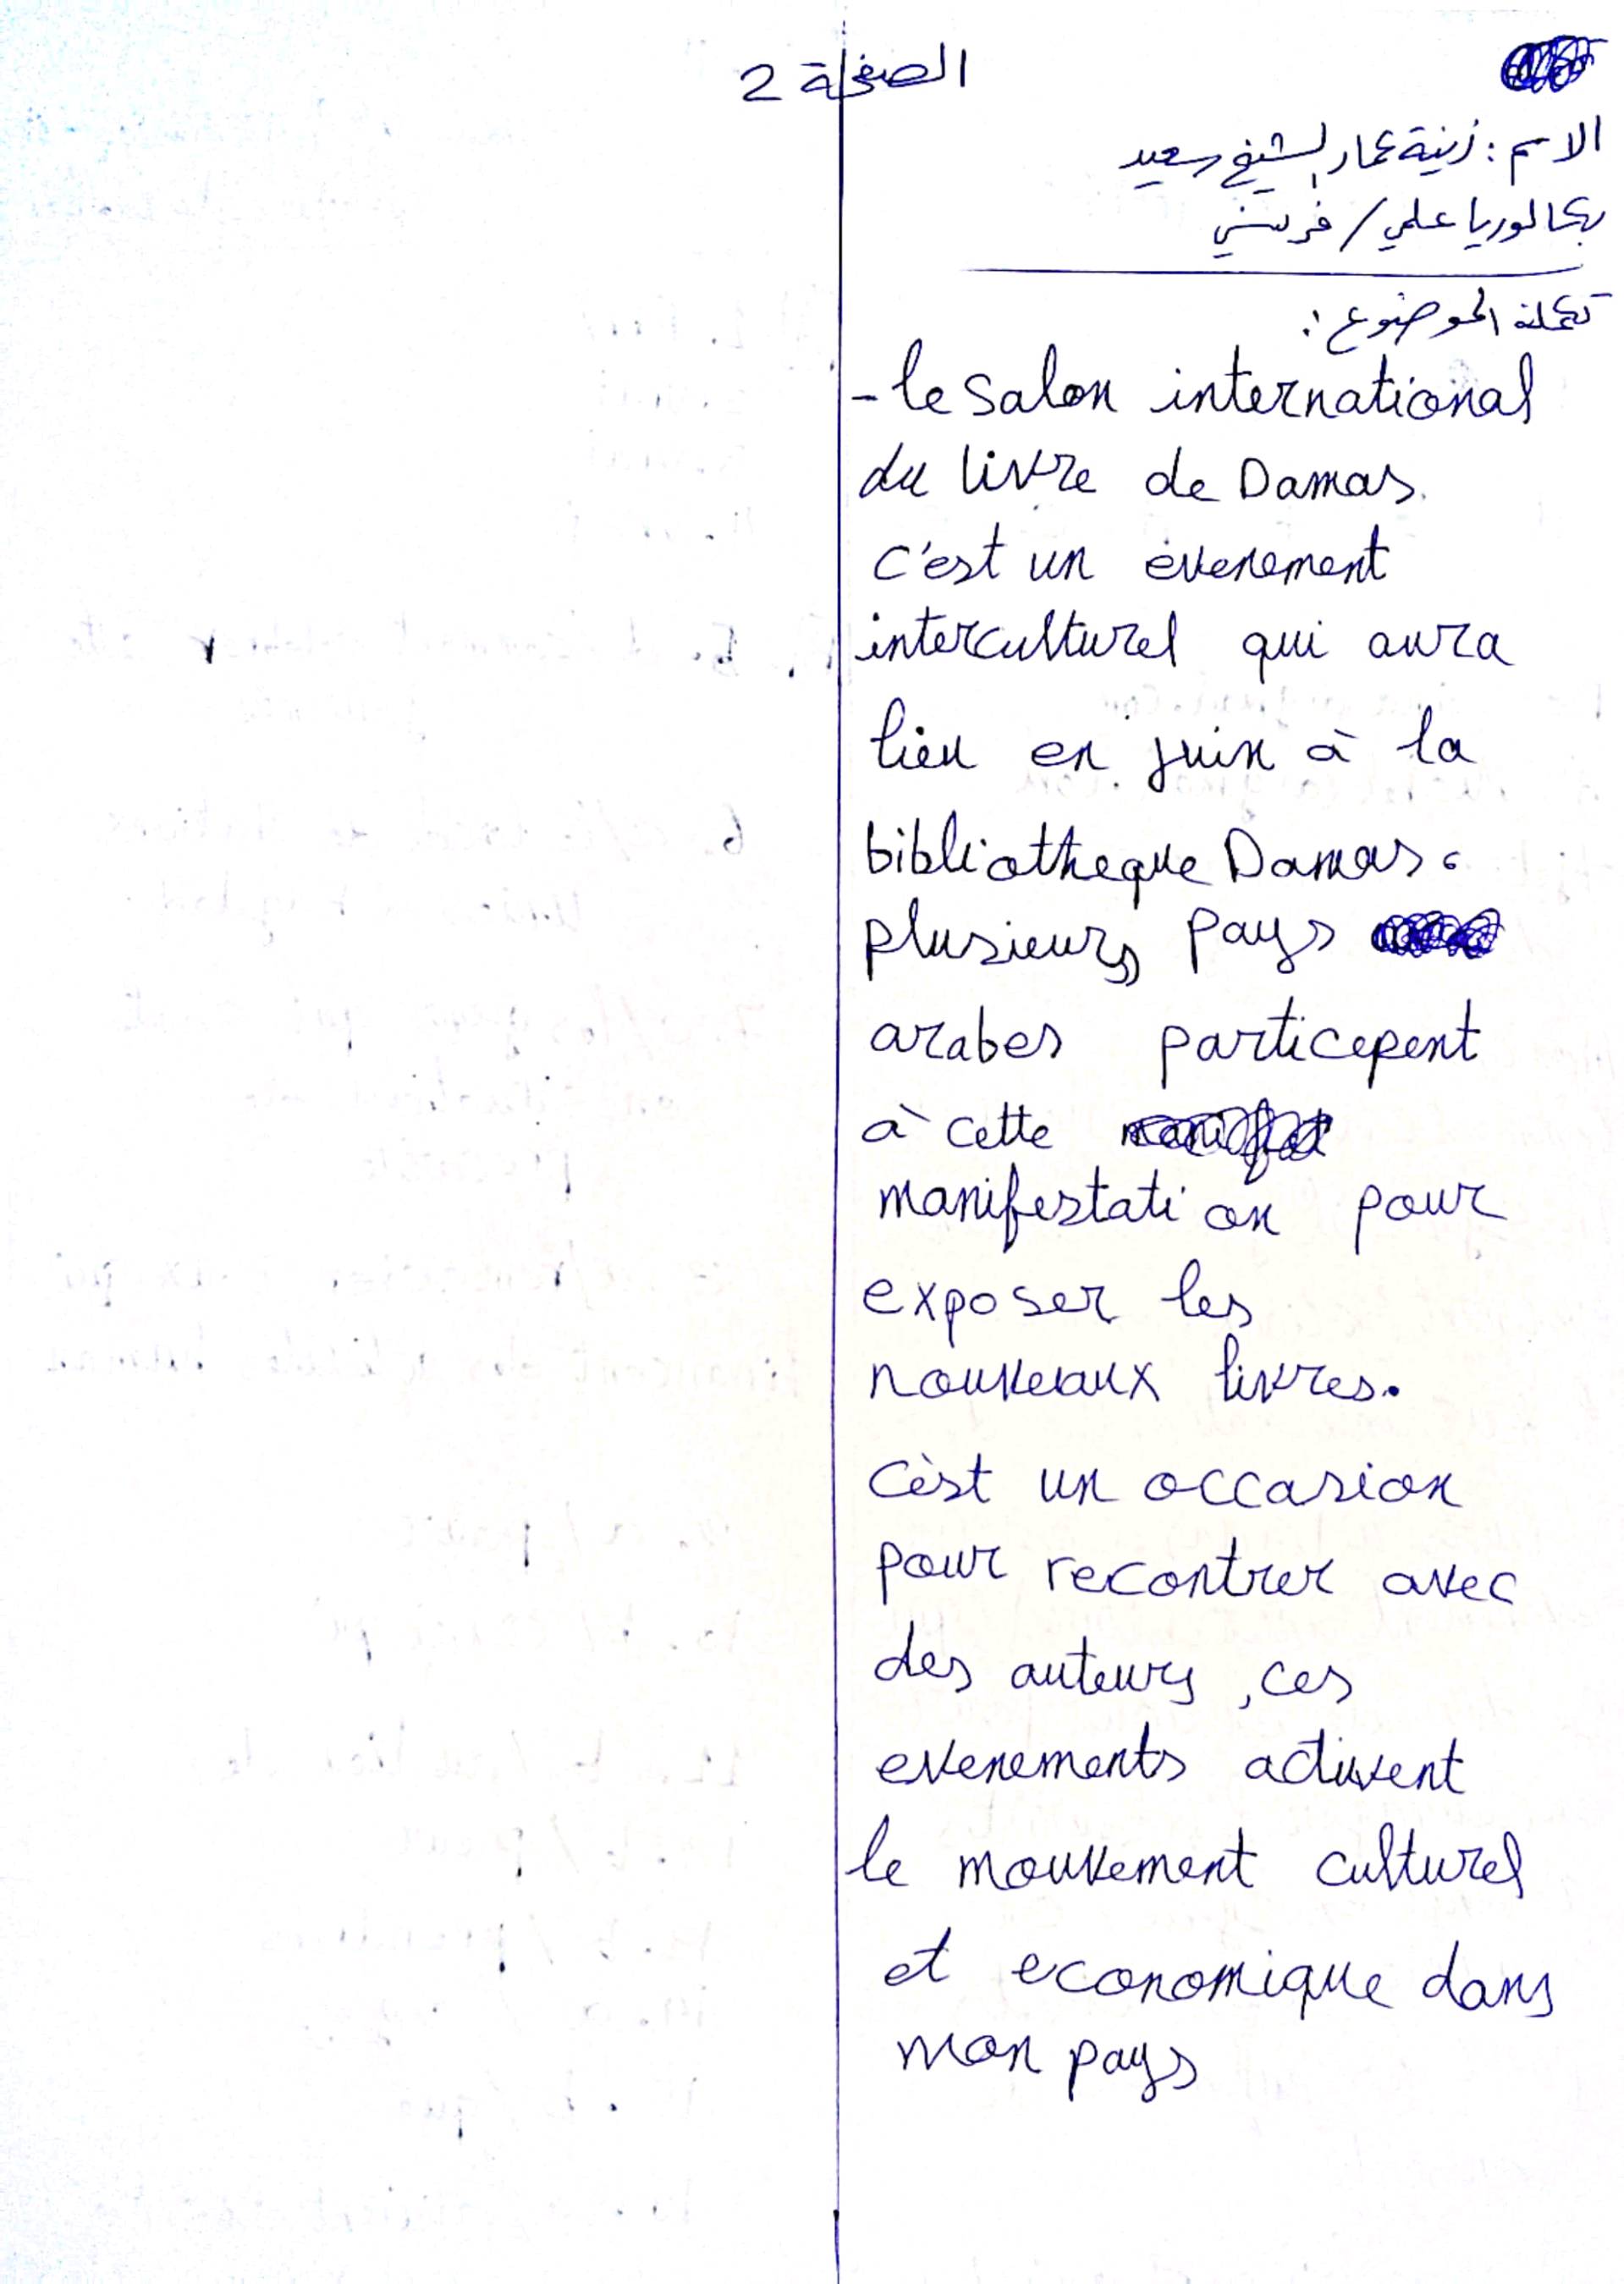 الصفحة 2
الاسم: زينة عمار الشيخ سعيد
بكالوريا علمي / فرنسي
تكملة الموضوع:
- le salon international
du livre de Damas.
c'est un évenement
interculturel qui aura
lieu en juin à la
bibliotheque Damas.
plusieurs pays
arabes particepent
à cette
manifestation pour
exposer les
nouveaux livres.
Cèst un occasion
pour recontrer avec
des auteurs, ces
evenements activent
le mouvement culturel
et economique dans
mon pays